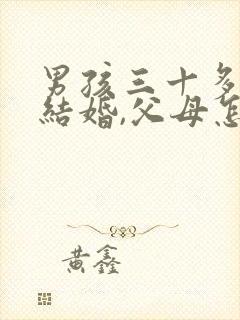 男孩三十多
結婚,父母怎
黃鑫